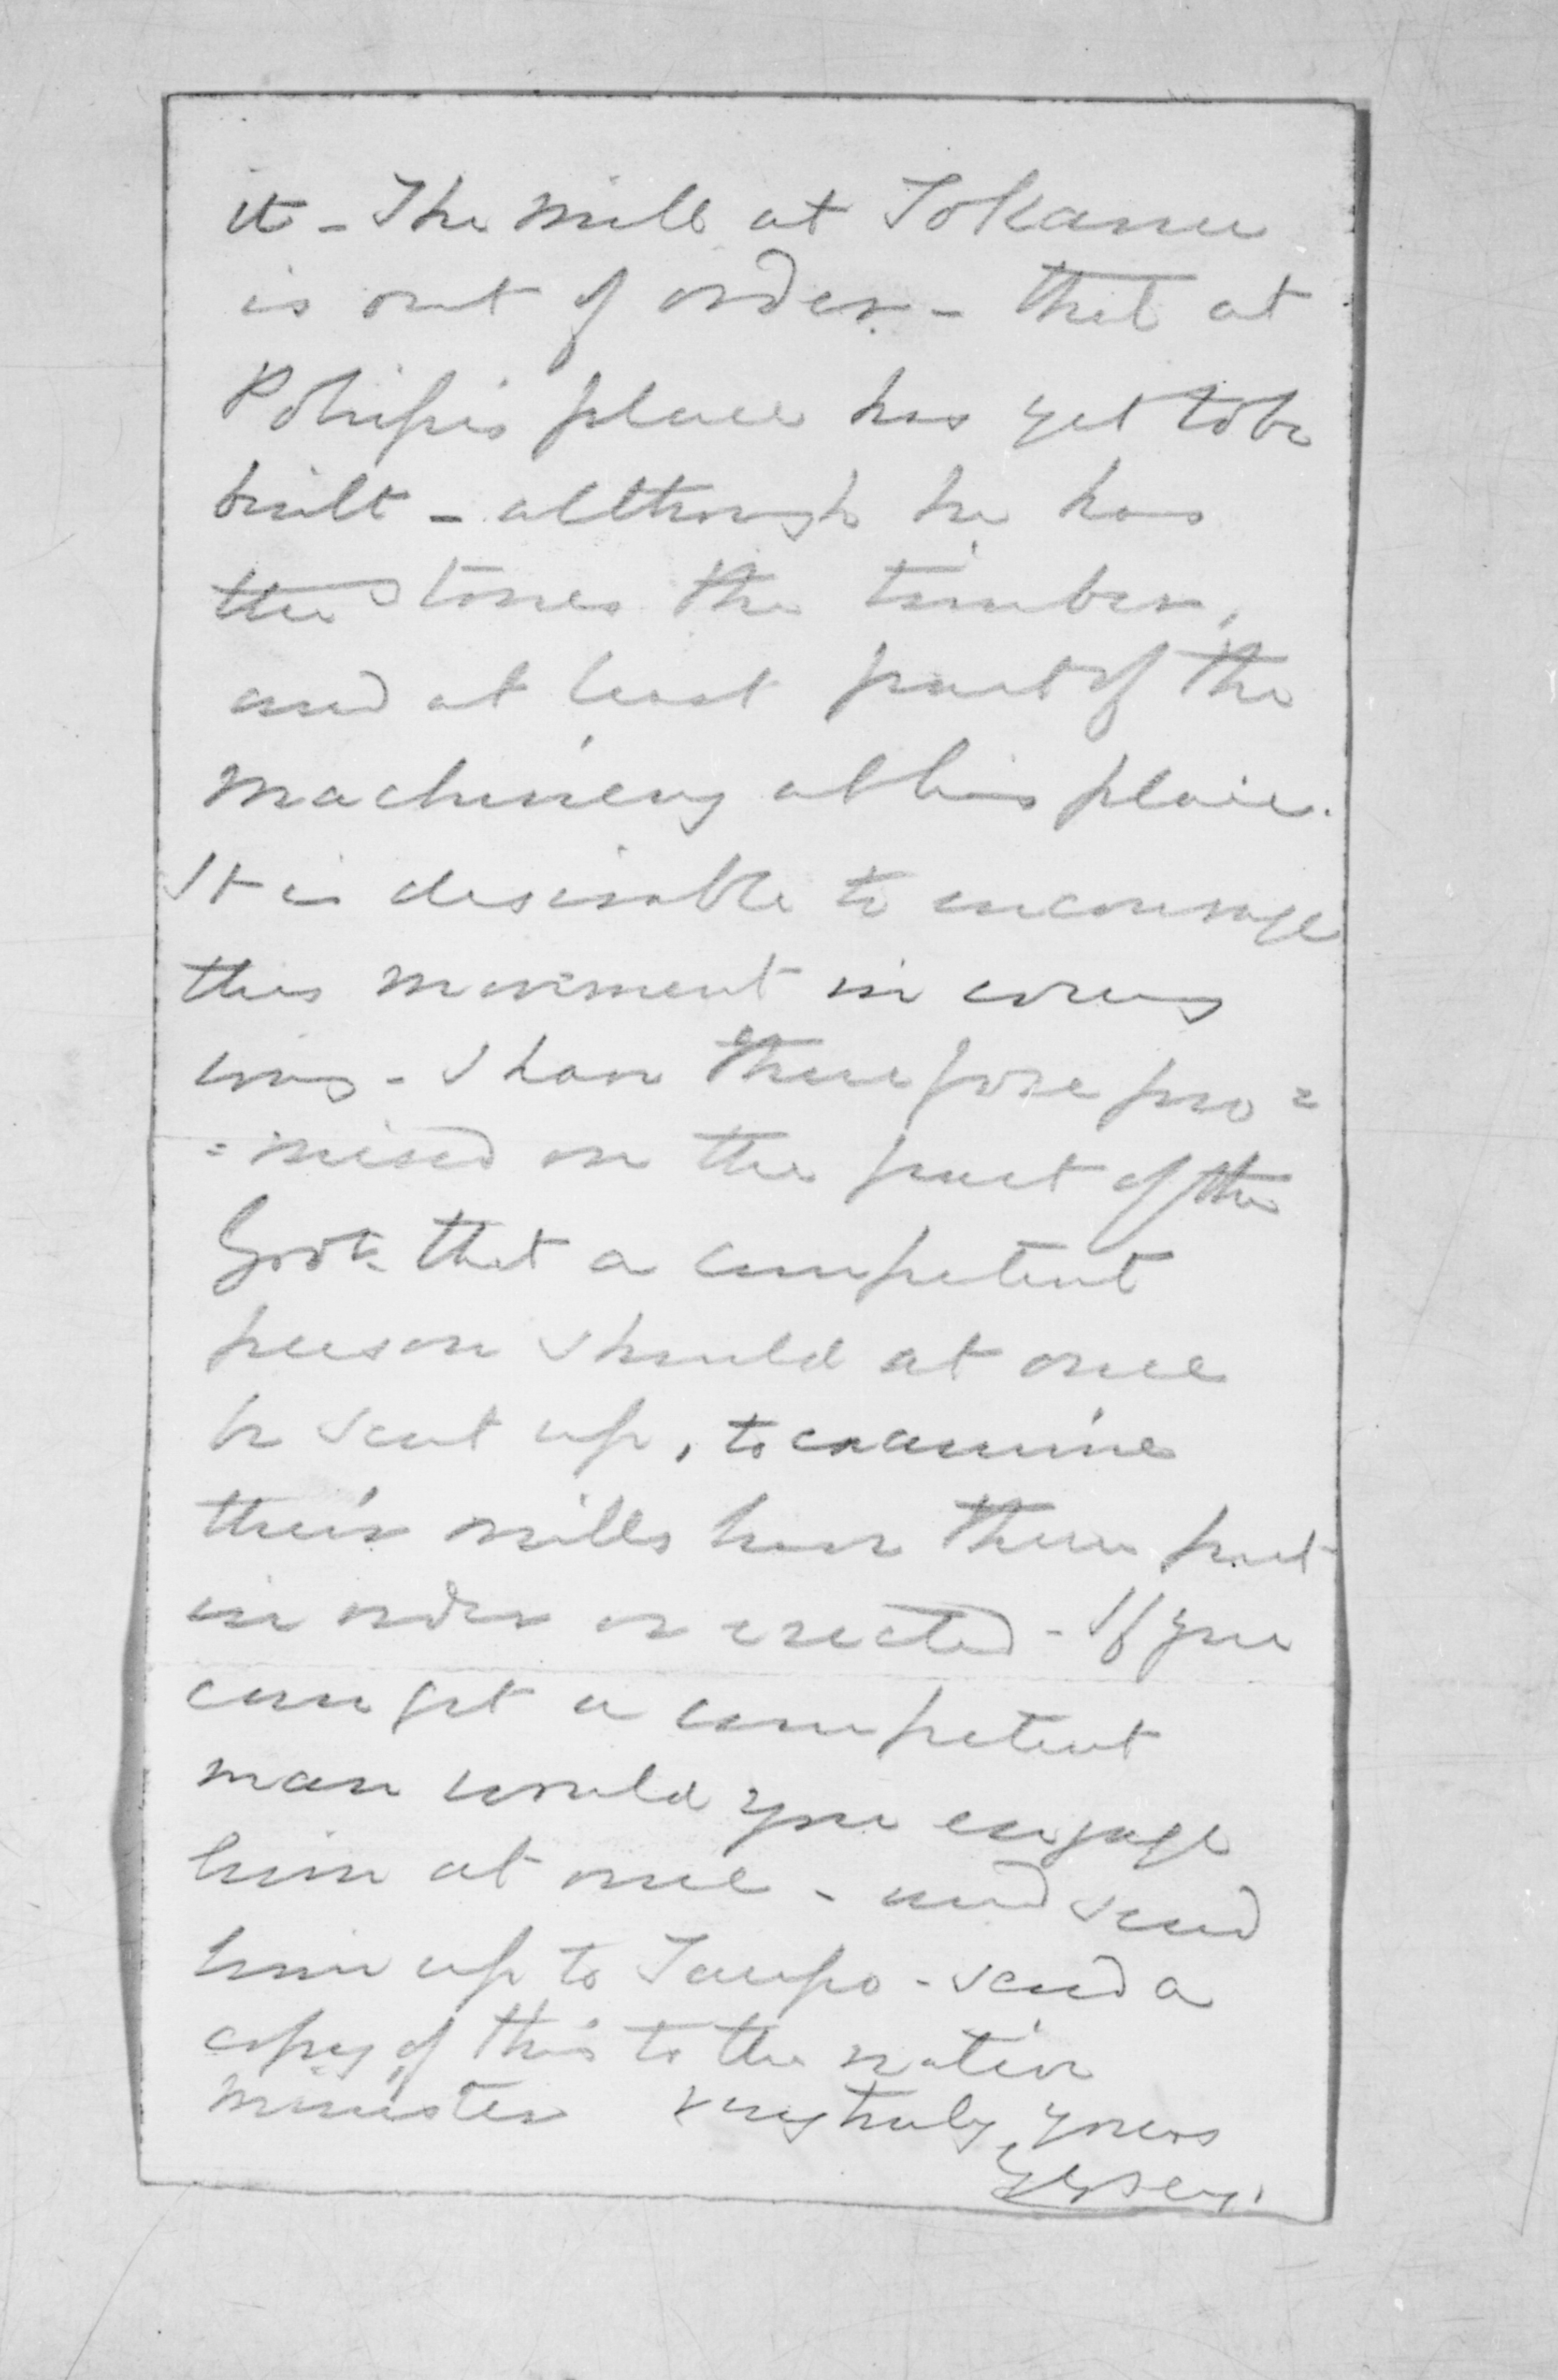 it - The mill at Tokanu
is out of order - that at
Pohipis place has yet to be
built - although he has
the stones the timber,
and at least part of the
machinery at his place.
It is desirable to encourage
this movement in every
way - I have therefore pro=
=mised on the part of the
Govt. that a competent
person should at once
be sent up, to examine
their mills have them put
in order or erected - If you
can get a competent
man would you engage
him at once - and send
him up to Taupo - send a
copy of this to the native
minister very truly yours